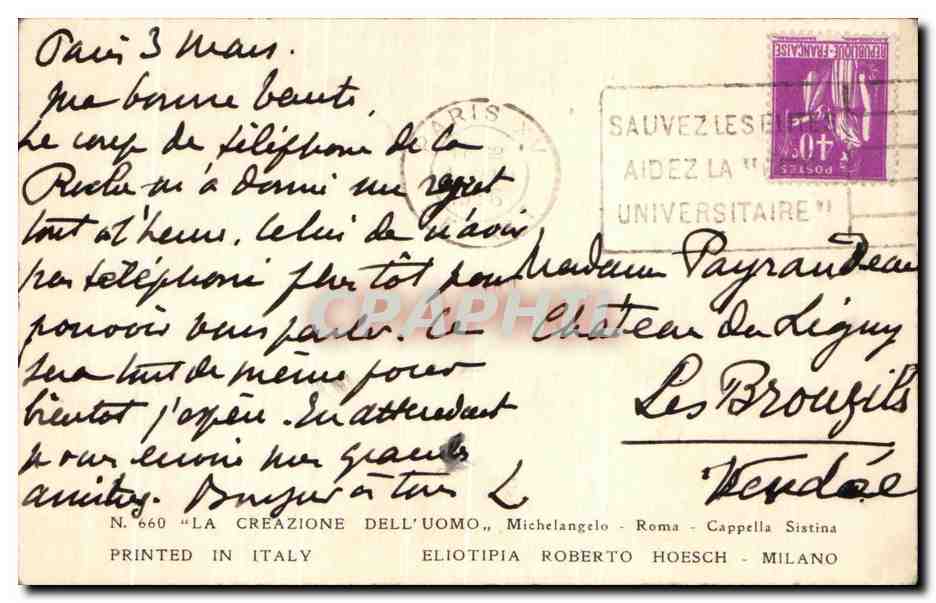 Paris 3 Mars.
Ma bonne Tante,
Le coup de téléphone de la
Roche m'a donné un regret
tout à l'heure. Celui de n'avoir
pas téléphoné plus tôt pour
pouvoir vous parler. Ce
sera tout de même pour
bientôt j'espère. En attendant
je vous envoie mes grandes
amitiés. Bonjour à tous L
PARIS XV
SAUVEZ LES
AIDEZ LA "
UNIVERSITAIRE"
REPUBLIQUE-FRANÇAISE
40c
POSTES
Madame Payraudeau
Château du Ligny
Les Brouzils
Vendée
CPAPHIL
N. 660 "LA CREAZIONE DELL'UOMO„ Michelangelo - Roma - Cappella Sistina
PRINTED IN ITALY ELIOTIPIA ROBERTO HOESCH - MILANO